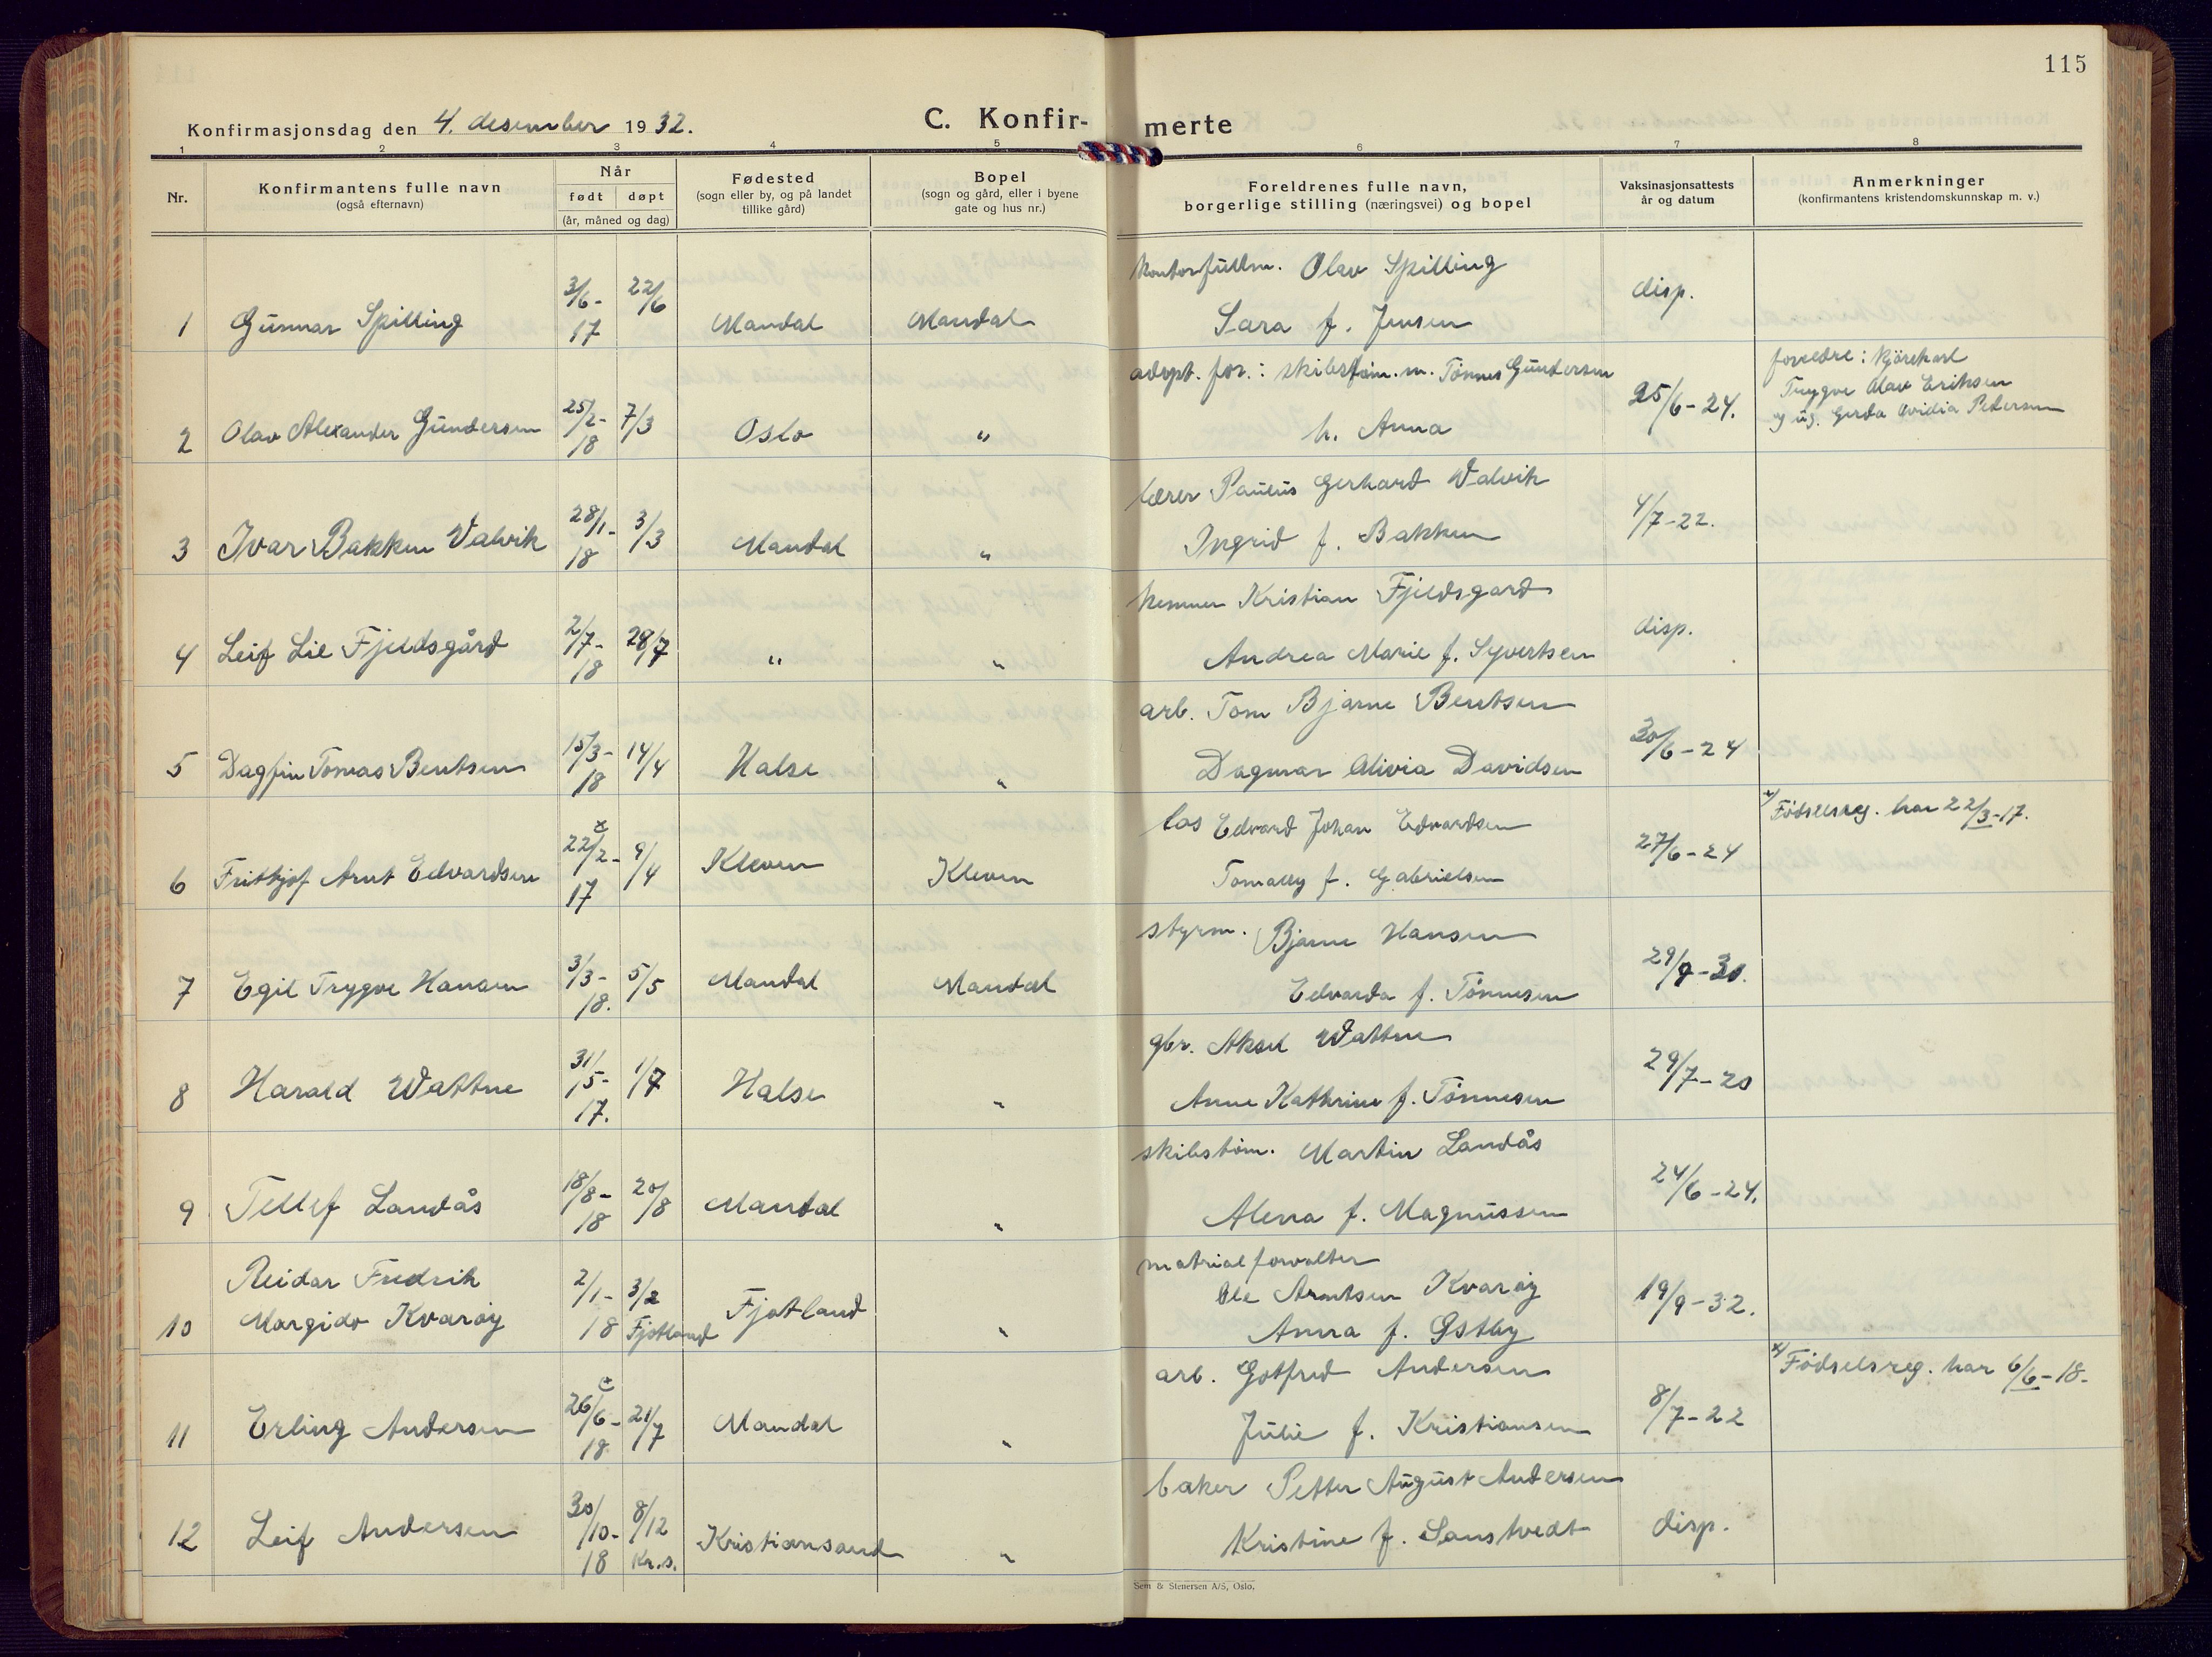 115
Konfirmasjonsdag den 4. desember 1932. C. Konfir- merte
1 2 3 4 5 6 7 8
Nr.
Konfirmantens fulle navn
(også efternavn)
Når
født døpt
(år, måned og dag)
Fødested
(sogn eller by, og på landet
tillike gård)
Bopel
(sogn og gård, eller i byene
gate og hus nr.)
Foreldrenes fulle navn,
borgerlige stilling (næringsvei) og bopel
Vaksinasjonsattests
år og datum
Anmerkninger
(konfirmantens kristendomskunnskap m. v.)
1 Gunnar Spilling 3/6-17 22/6 Mandal Mandal
kontorfullm. Olav Spilling
Sara f. Jensen
disp.
2 Olav Alexander Gundersen 25/2-18 7/3 Oslo "
adopt. for.: skibstøm.m. Tønnes Gundersen
h. Anna
25/6-24.
foreldre: kjørekarl
Trygve Olav Eriksen
og ug. Gerda Ovidia Pedersen
3 Ivar Bakken Valvik 28/1-18 3/3 Mandal "
lærer Paulus Gerhard Valvik
Ingrid f. Bakken
4/7-22.
4 Leif Lie Fjeldsgård 2/7-18 28/7 " "
kemner Kristian Fjeldsgard
Andrea Marie f. Syvertsen
disp.
5 Dagfin Tomas Bentsen 15/3-18 14/4 Halse "
arb. Tom Bjarne Bentsen
Dagmar Olivia Davidsen
30/6-24
6 Fritjof Arnt Edvardsen 22/2-17 x 9/4 Kleven Kleven
los Edvard Johan Edvardsen
Tomally f. Gabrielsen
27/6-24
x) Fødselsreg. har 22/3-17.
7 Egil Trygve Hansen 3/3-18. 5/5 Mandal Mandal
styrm. Bjarne Hansen
Edvarda f. Tønnesen
29/9-30.
8 Harald Wattne 31/5-17. 1/7 Halse "
gbr. Aksel Wattne
Anne Kathrine f. Tønnesen
29/7-20
9 Tellef Landås 18/8-18 20/8 Mandal "
skibstøm. Martin Landås
Alena f. Magnussen
24/6-24.
10 Reidar Fredrik
Margido Kvarøy 2/1-18 3/2 Fjotland Fjotland "
matrialforvalter
Ole Arntsen Kvarøy
Anna f. Østby
19/9-32.
11 Erling Andersen 26/6-18 x 21/7 Mandal "
arb. Gotfred Andersen
Julie f. Kristiansen
8/7-22
x) Fødselsreg. har 6/6-18-
12 Leif Andersen 30/10-18 8/12 Kr.s. Kristiansand "
baker Petter August Andersen
Kristine f. Sanstvedt
disp.
Sem & Stenersen A/S, Oslo.